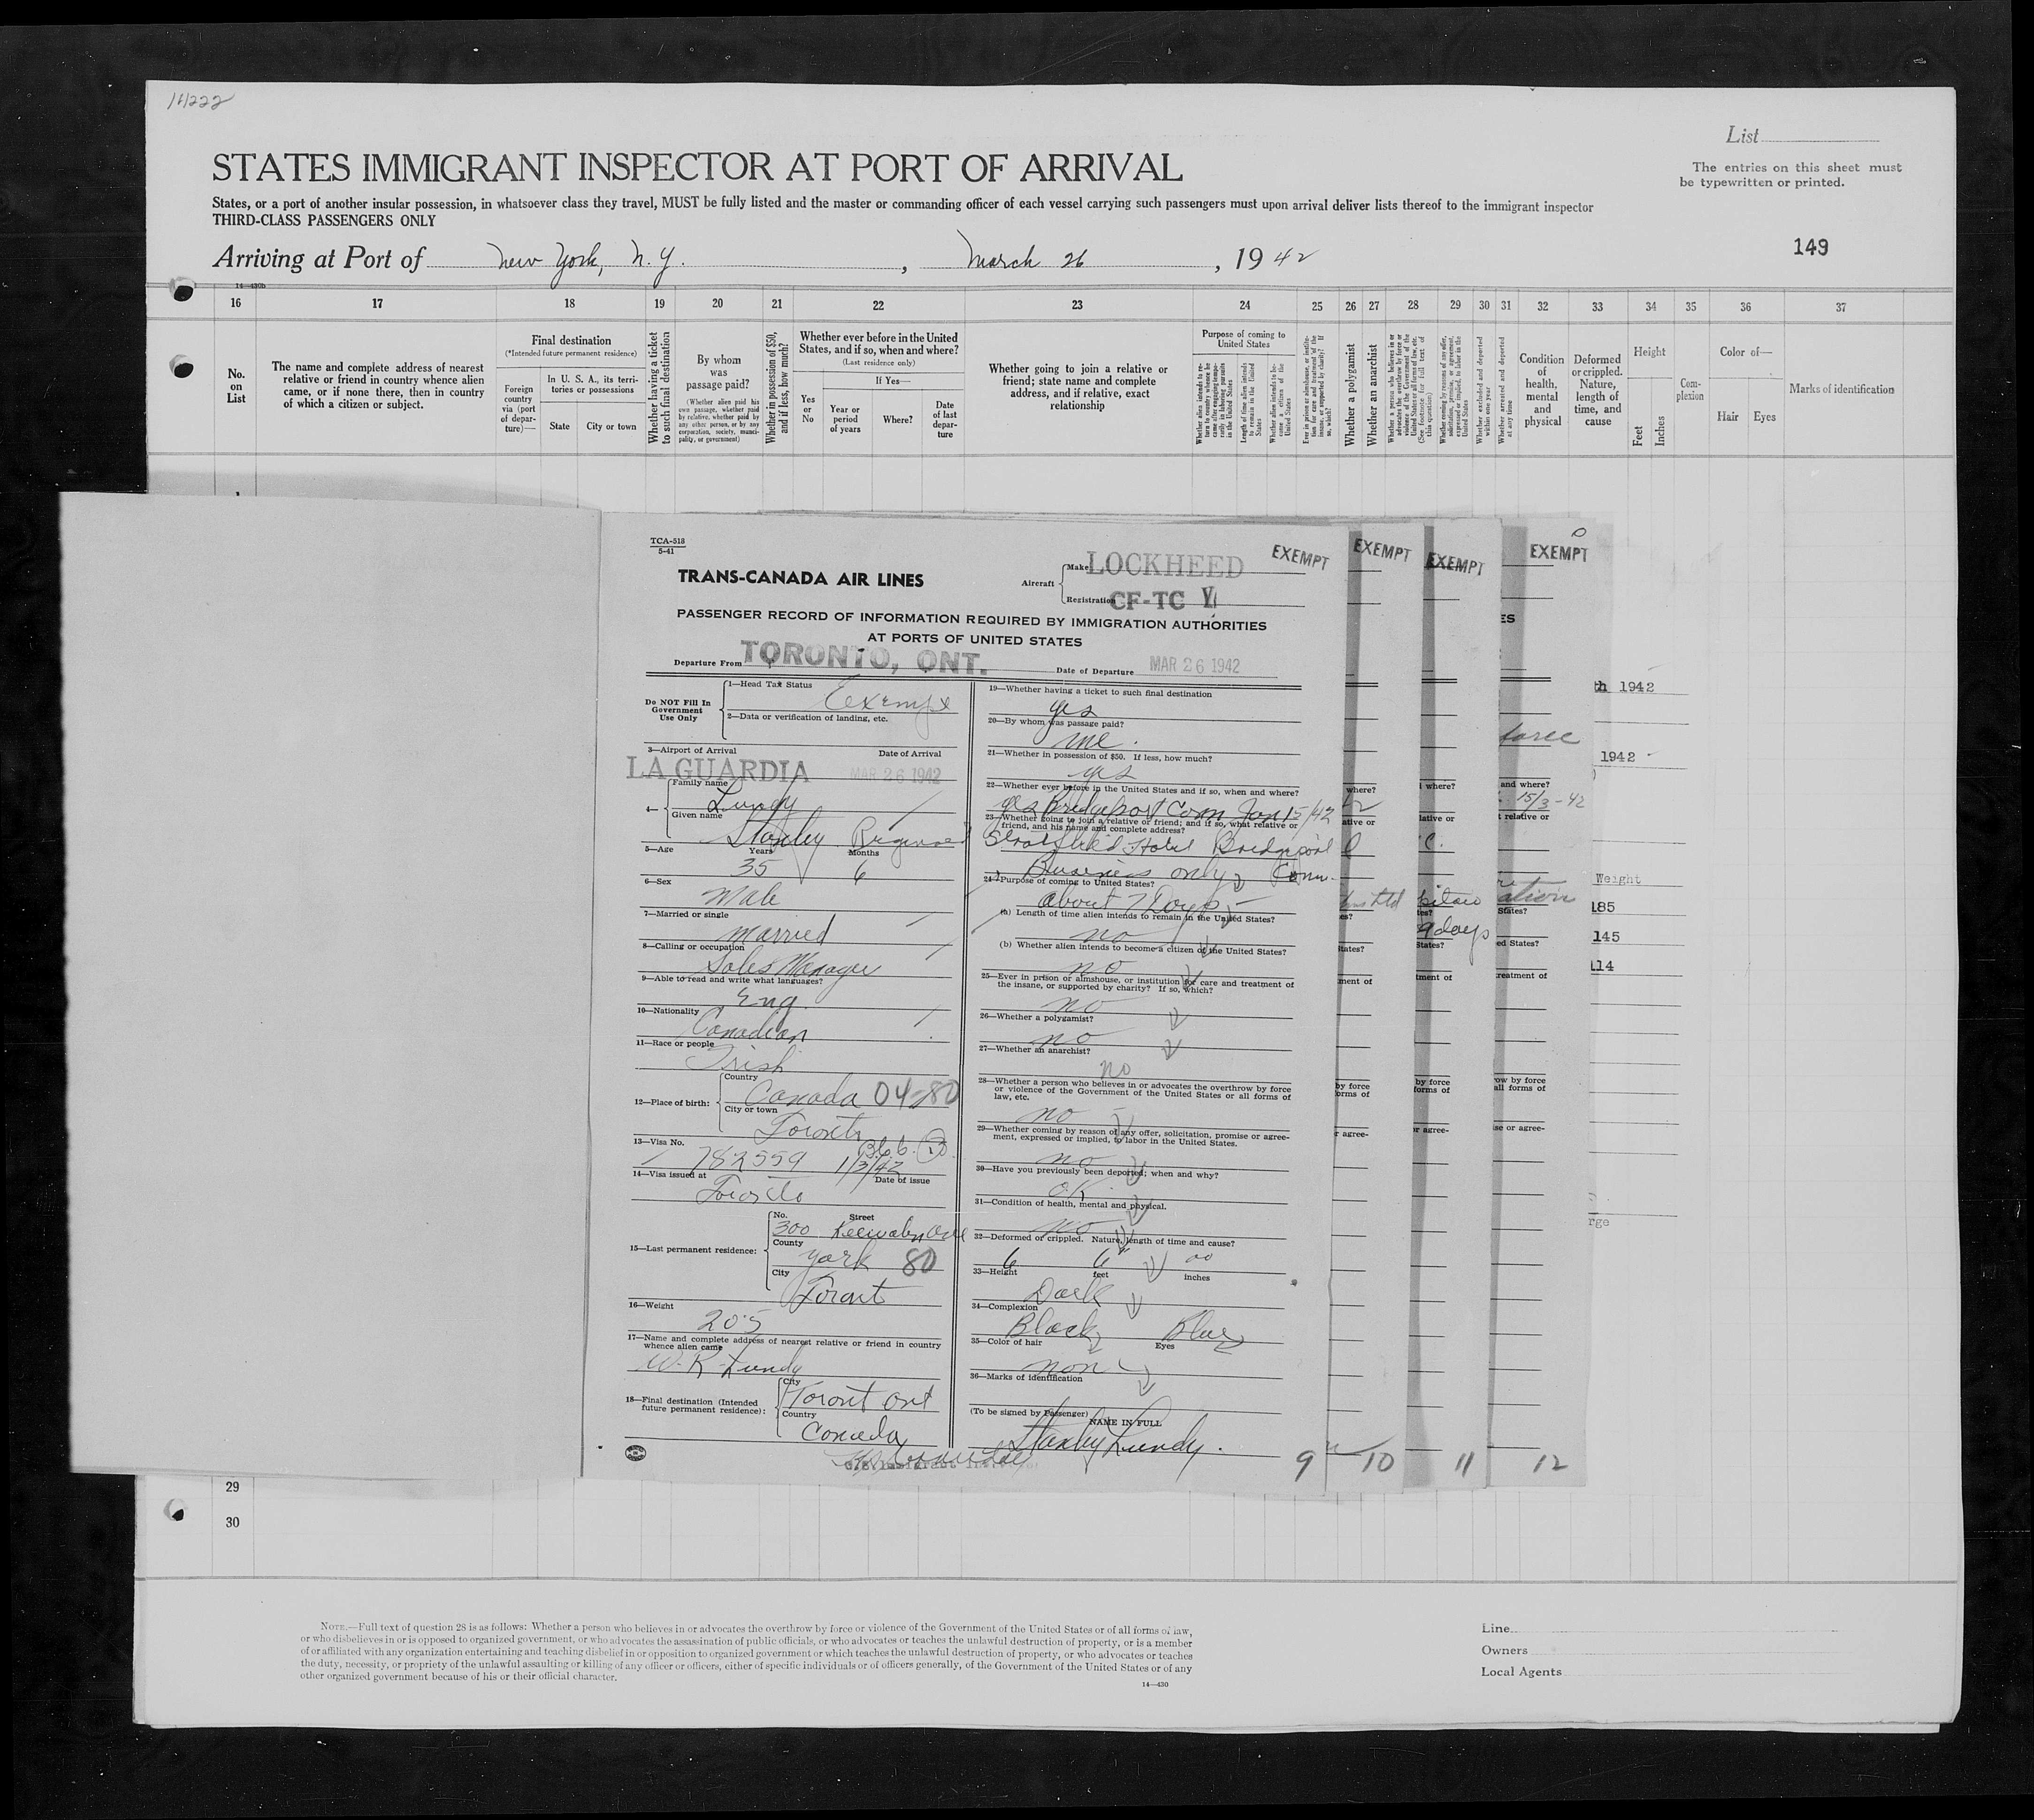 14222
List
STATES IMMIGRANT INSPECTOR AT PORT OF ARRIVAL
The entries on this sheet must
be typewritten or printed.
States, or a port of another insular possession, in whatsoever class they travel, MUST be fully listed and the master or commanding officer of each vessel carrying such passengers must upon arrival deliver lists thereof to the immigrant inspector
THIRD-CLASS PASSENGERS ONLY
Arriving at Port of New York, N.Y., March 26, 1942
149
14—430b
16 17 18 19 20 21 22 23 24 25 26 27 28 29 30 31 32 33 34 35 36 37
No. on List
The name and complete address of nearest
relative or friend in country whence alien
came, or if none there, then in country
of which a citizen or subject.
Final destination
(*Intended future permanent residence)
Foreign country via (port of departure)—
In U. S. A., its territories or possessions
State
City or town
Whether having a ticket to such final destination
By whom was passage paid?
(Whether alien paid his own passage, whether paid by relative, whether paid by any other person, or by any corporation, society, municipality, or government)
Whether in possession of $50, and if less, how much?
Whether ever before in the United
States, and if so, when and where?
(Last residence only)
If Yes—
Yes or No
Year or period of years
Where?
Date of last departure
Whether going to join a relative or
friend; state name and complete
address, and if relative, exact
relationship
Purpose of coming to United States
Length of time alien intends to remain in the United States
Whether alien intends to become a citizen of the United States
Whether a polygamist
Whether an anarchist
Whether arrested and deported at any time
Condition of health, mental and physical
Deformed or crippled. Nature, length of time, and cause
Height
Feet
Inches
Complexion
Color of—
Hair
Eyes
Marks of identification
TCA-518
5-41
TRANS-CANADA AIR LINES
Aircraft
Make LOCKHEED
Registration CF-TC
EXEMPT
EXEMPT
EXEMPT
EXEMPT
PASSENGER RECORD OF INFORMATION REQUIRED BY IMMIGRATION AUTHORITIES
AT PORTS OF UNITED STATES
Departure From TORONTO, ONT.
Date of Departure MAR 26 1942
Do NOT Fill In
Government
Use Only
1—Head Tax Status Exempt
2—Data or verification of landing, etc.
3—Airport of Arrival
Date of Arrival
LA GUARDIA MAR 26 1942
4— Family name
Lundy
Given name
Stanley
5—Age Years Months
35 6
6—Sex
Male
7—Married or single
Married
8—Calling or occupation
Sales Manager
9—Able to read and write what languages?
Eng.
10—Nationality
Canadian
11—Race or people
Irish
12—Place of birth:
Country
Canada 04-80
City or town
Toronto
13—Visa No.
782559 1/3/42
14—Visa issued at
Date of issue
Toronto
15—Last permanent residence:
No. Street
300
County
York 80
City
Toront
16—Weight
205
17—Name and complete address of nearest relative or friend in country
whence alien came
W. R. Lundy
18—Final destination (Intended
future permanent residence):
City
Toront Ont
Country
Canada
19—Whether having a ticket to such final destination
yes
20—By whom was passage paid?
me.
21—Whether in possession of $50. If less, how much?
yes
22—Whether ever before in the United States and if so, when and where?
yes Bridgeport Conn Jan 15/42
23—Whether going to join a relative or friend; and if so, what relative or
friend, and his name and complete address?
Stratfield Hotel Bridgeport
Business only Conn.
24—Purpose of coming to United States?
about 7 Days
(a) Length of time alien intends to remain in the United States?
no
(b) Whether alien intends to become a citizen of the United States?
no
25—Ever in prison or almshouse, or institution for care and treatment of
the insane, or supported by charity? If so, which?
no
26—Whether a polygamist?
no
27—Whether an anarchist?
no
28—Whether a person who believes in or advocates the overthrow by force
or violence of the Government of the United States or all forms of
law, etc.
no
29—Whether coming by reason of any offer, solicitation, promise or agree-
ment, expressed or implied, to labor in the United States.
no
30—Have you previously been deported; when and why?
OK
31—Condition of health, mental and physical.
no
32—Deformed or crippled. Nature, length of time and cause?
6 6" 00
33—Height feet inches
Dark
34—Complexion
Black Blue
35—Color of hair Eyes
non
36—Marks of identification
(To be signed by Passenger)
NAME IN FULL
Stanley Lundy.
9 10 11 12
th 1942
1942
and where?
15/3-42
Weight
185
145
114
9 days
29
30
NOTE.—Full text of question 28 is as follows: Whether a person who believes in or advocates the overthrow by force or violence of the Government of the United States or of all forms of law,
or who disbelieves in or is opposed to organized government, or who advocates the assassination of public officials, or who advocates or teaches the unlawful destruction of property, or is a member
of or affiliated with any organization entertaining and teaching disbelief in or opposition to organized government or which teaches the unlawful destruction of property, or who advocates or teaches
the duty, necessity, or propriety of the unlawful assaulting or killing of any officer or officers, either of specific individuals or of officers generally, of the Government of the United States or of any
other organized government because of his or their official character.
14—430
Line
Owners
Local Agents